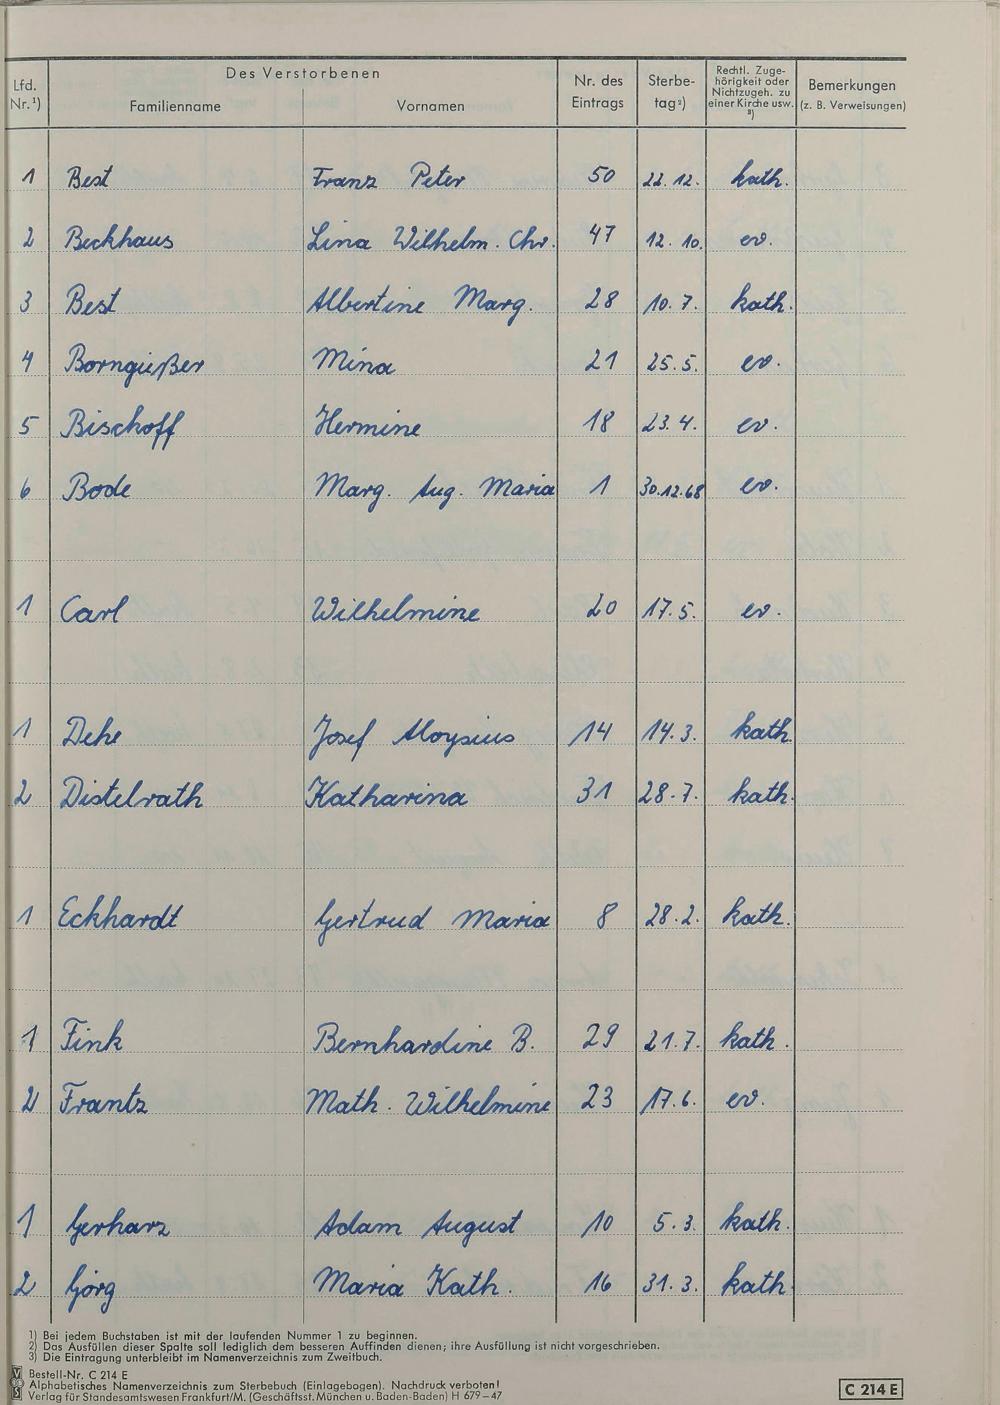 Lfd. Nr.¹) Des Verstorbenen Familienname Vornamen Nr. des Eintrags Sterbetag²) Rechtl. Zugehörigkeit oder Nichtzugeh. zu einer Kirche usw. ³) Bemerkungen (z. B. Verweisungen)
1 Best Franz Peter 50 22.12. kath.
2 Beckhaus Lina Wilhelm. Chr. 47 12.10. ev.
3 Best Albertine Marg. 28 10.7. kath.
4 Borngießer Mina 21 25.5. ev.
5 Bischoff Hermine 18 23.4. ev.
6 Bode Marg. Aug. Maria 1 30.12.68 ev.
1 Carl Wilhelmine 20 17.5. ev.
1 Dehe Josef Aloysius 14 14.3. kath.
2 Distelrath Katharina 31 28.7. kath.
1 Eckhardt Gertrud Maria 8 28.2. kath.
1 Fink Bernhardine B. 29 21.7. kath.
2 Frantz Math. Wilhelmine 23 17.6. ev.
1 Gerharz Adam August 10 5.3. kath.
2 Görg Maria Kath. 16 31.3. kath.
1) Bei jedem Buchstaben ist mit der laufenden Nummer 1 zu beginnen.
2) Das Ausfüllen dieser Spalte soll lediglich dem besseren Auffinden dienen; ihre Ausfüllung ist nicht vorgeschrieben.
3) Die Eintragung unterbleibt im Namenverzeichnis zum Zweitbuch.
Bestell-Nr. C 214 E
Alphabetisches Namenverzeichnis zum Sterbebuch (Einlagebogen). Nachdruck verboten!
Verlag für Standesamtswesen Frankfurt/M. (Geschäftsst. München u. Baden-Baden) H 679–47
C 214 E